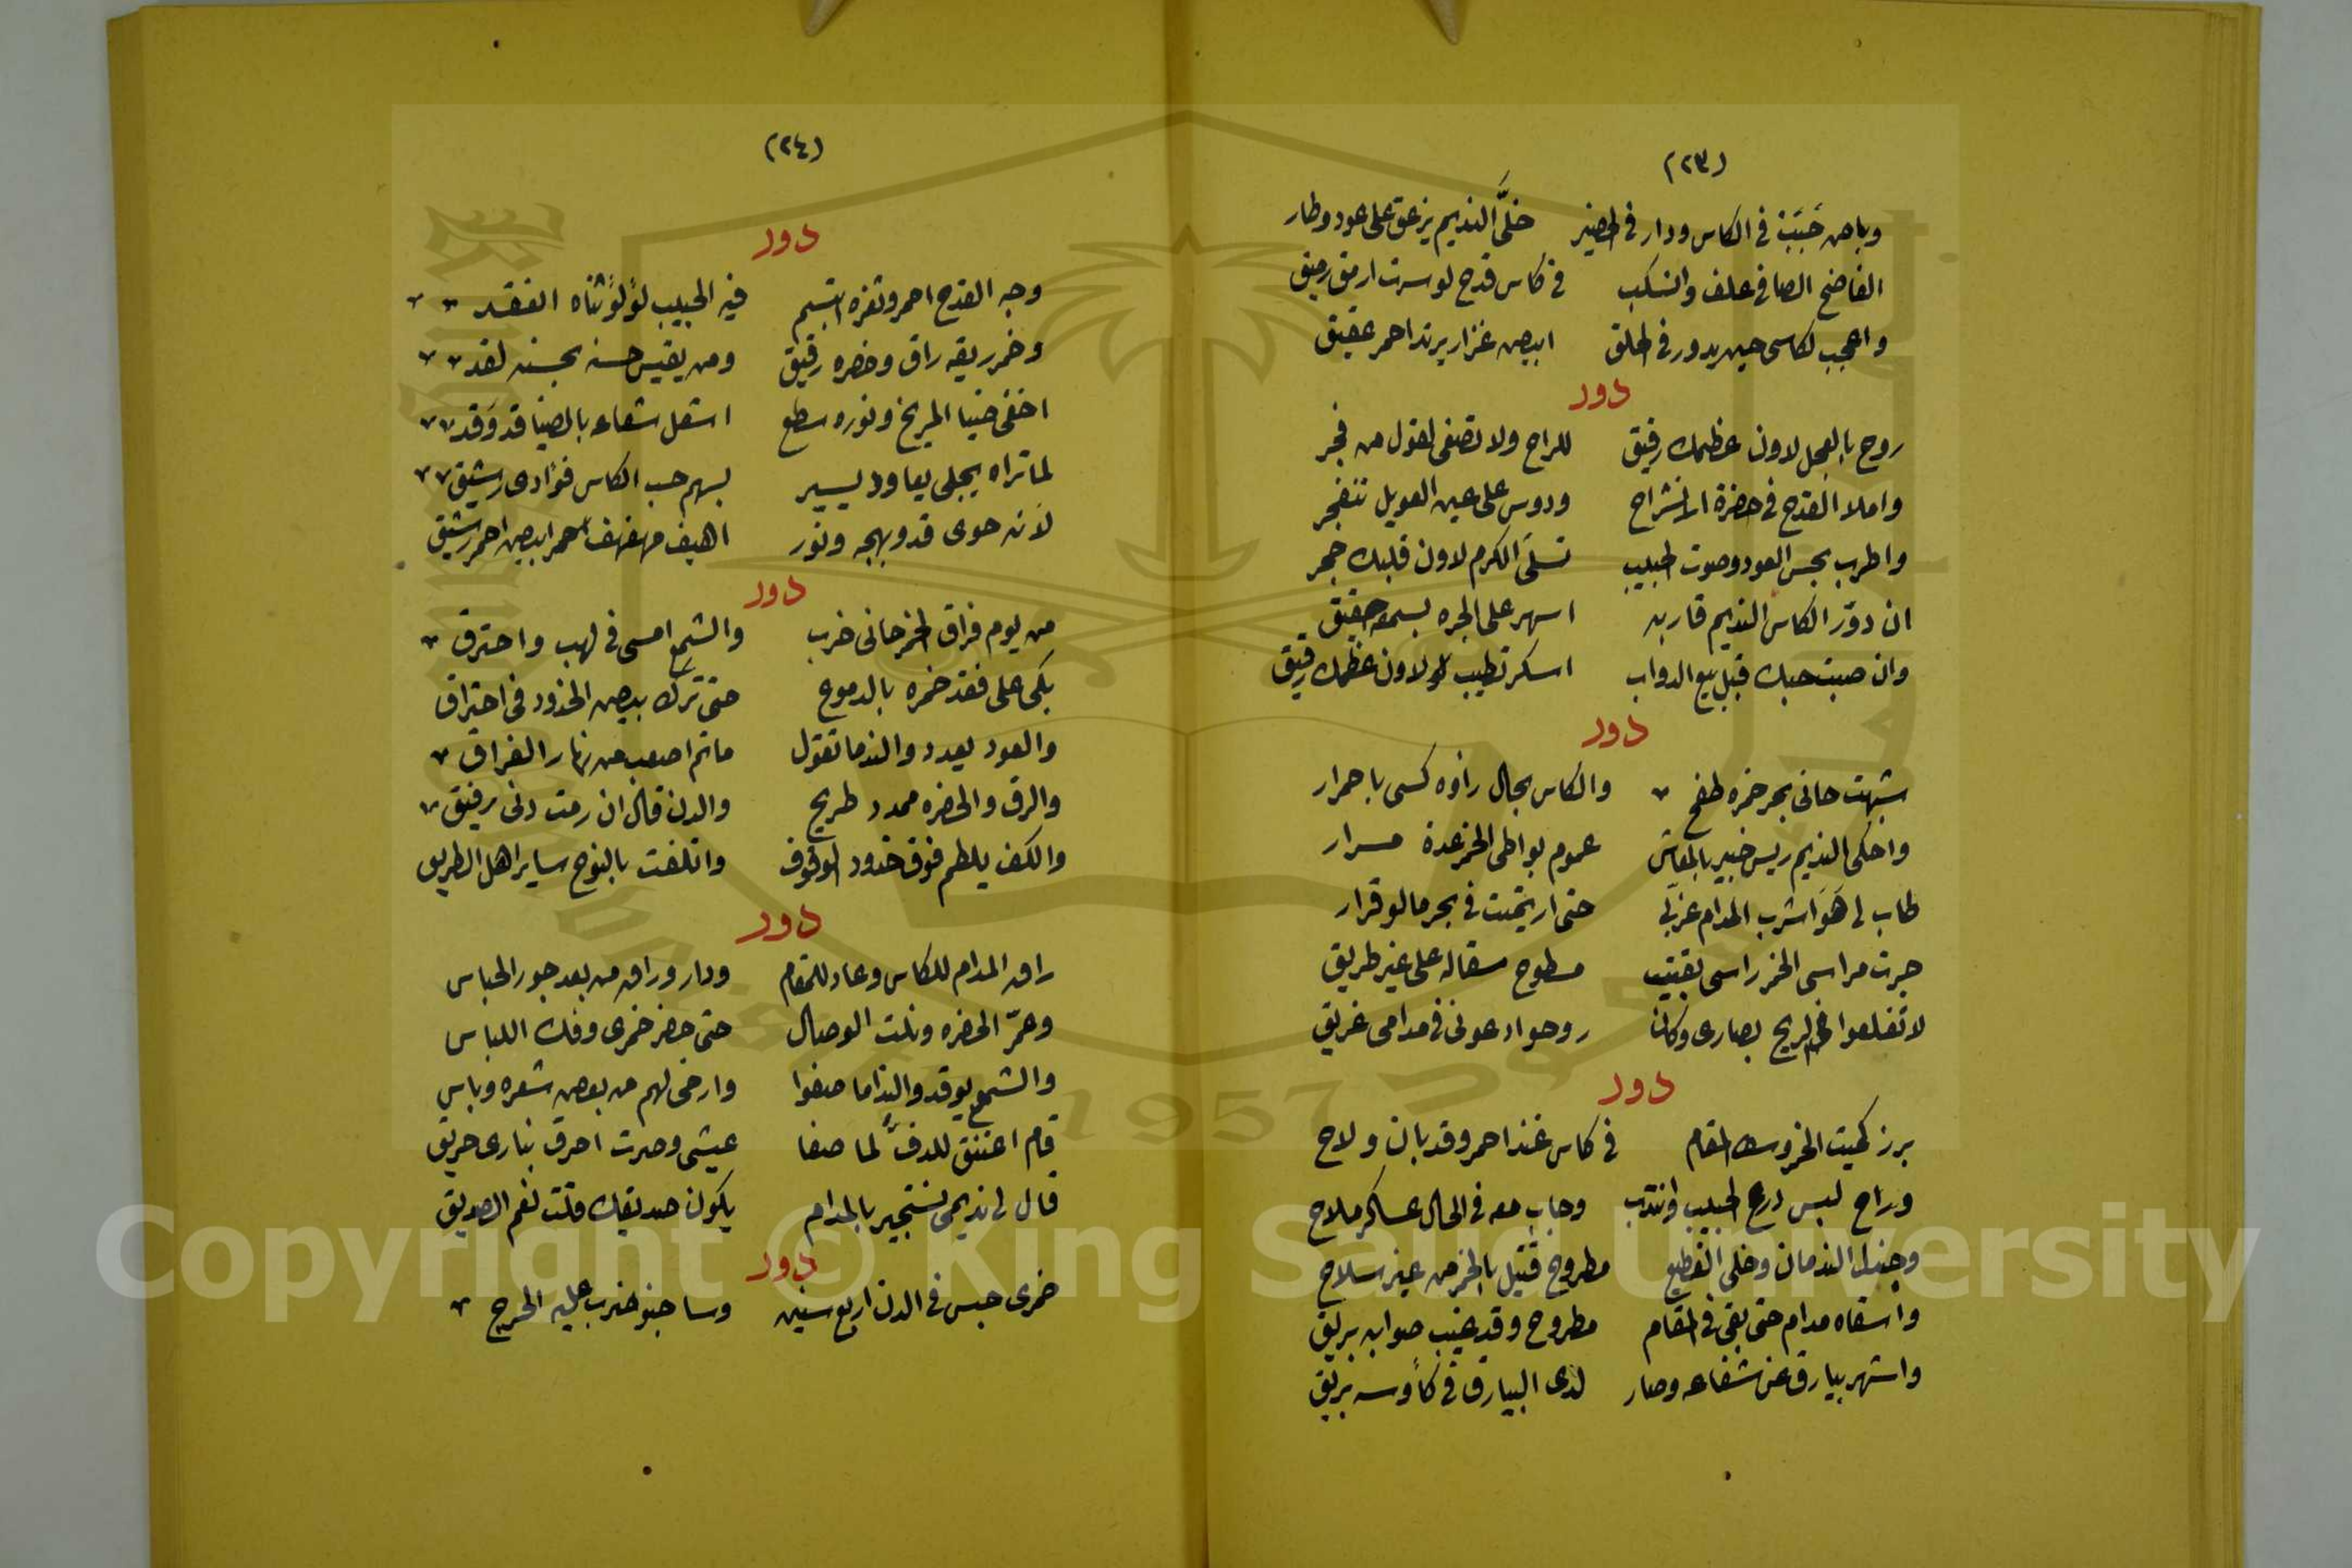 (٢٣)
وباض حَبَبَبْ في الكاس ودار في الحضير خلَّى النديم يزعق على عود وطار
الفاضح الصافي علف والنسكب في كاس قدح لو سرت ارمق رحيق
واعجب لكاسى حين يدور في الحلق ابيض غزار يرتد احمر عقيق
دور
روح بالعجل لاون عظمك رقيق للراح ولا تصغى لقول من فجر
واملا القدح في حضرة الانشراح ودوس على عين العويل تنفجر
واطرب بجس العود وصوت الحبيب تسلى الكرم لاون قلبك حجر
ان دوّر الكاس النديم قاربه اسهر على الجره بسمعه حقيق
وان صبت حبك قبل بيع الدواب اسكر تطيب لو لاون عظمك رقيق
دور
شبهت حانى بحر خمره طفح والكاس بحال راؤه كسى باحمرار
واحكى النديم ريس خبير بالمعاش عموم بواطى الخمر عدة مرار
طاب لى هَوَا شرب المدام غزلي حتى ارتميت في بحر مالو قرار
جرت مراسى الخمر راسى بقيت مسطوح سقاله على غير طريق
لا تقلعوا في الريح بصارى وكان روحوا دعونى في مدامى غريق
دور
برز كميت الخمر وسط المقام في كاس غندا حمر وقد بان ولاح
وراح لبس درع الحبيب وانتدب وجاب معه في الحال عساكر ملاح
وجندل الندمان وخلى القطيع مطروح قتيل بالخمر من غير سلاح
واسقاه مدام حتى بقى في المقام مطروح وقد غيب صوابه بريق
واشهر بيارق عن شعاعه وصار لدى البيارق في كأوسه بريق
(٢٤)
دور
وجه القدح احمر وثغره ابتسم فيه الحبيب لؤلؤ ثناه انعقد
وخمر ريقه راق وخصره رقيق ومن يقيس حسنه بحسنه لقد
اخفى ضيا المريخ ونوره سطع اشعل شعاعه بالضيا قد وَقد
لما تراه يجلى يعاود يسير بسهم حب الكاس فؤادى رشيق
لانه حوى قد وبهجه ونور اهيف مهفهف احمر ابيض احمر رشيق
دور
من يوم فراق الخمر حانى خرب والشمع امسى في لهب واحترق
بكى على فقد خمره بالدموع حتى ترك بيض الخدود في احتراق
والعود يعدد والندما تقول ماتم اصعب من نار الفراق
والرق والحضره ممدد طريح والدن قال ان رمت دنى رفيق
والكف يلطم فوق خدود الدفوف واتلفت بالنوح ساير اهل الطريق
دور
راق المدام للكاس وعاد للمقام ودار وراق من بعد جور الحباس
وعمّر الحضره ونلت الوصال حتى حضر خمرى وفك اللباس
والشمع يوقد والنداما صفوا وارخى لهم من بعض شعره وباس
قام اعتنق للدف لما صفا عيشى وصرت احرق بنارى حريق
قال لى نديمى تستجير بالمدام يكون صديقك قلت نعم الصديق
دور
خمرى حبس في الدن اربع سنين وساجنو ضرب عليه الحرج